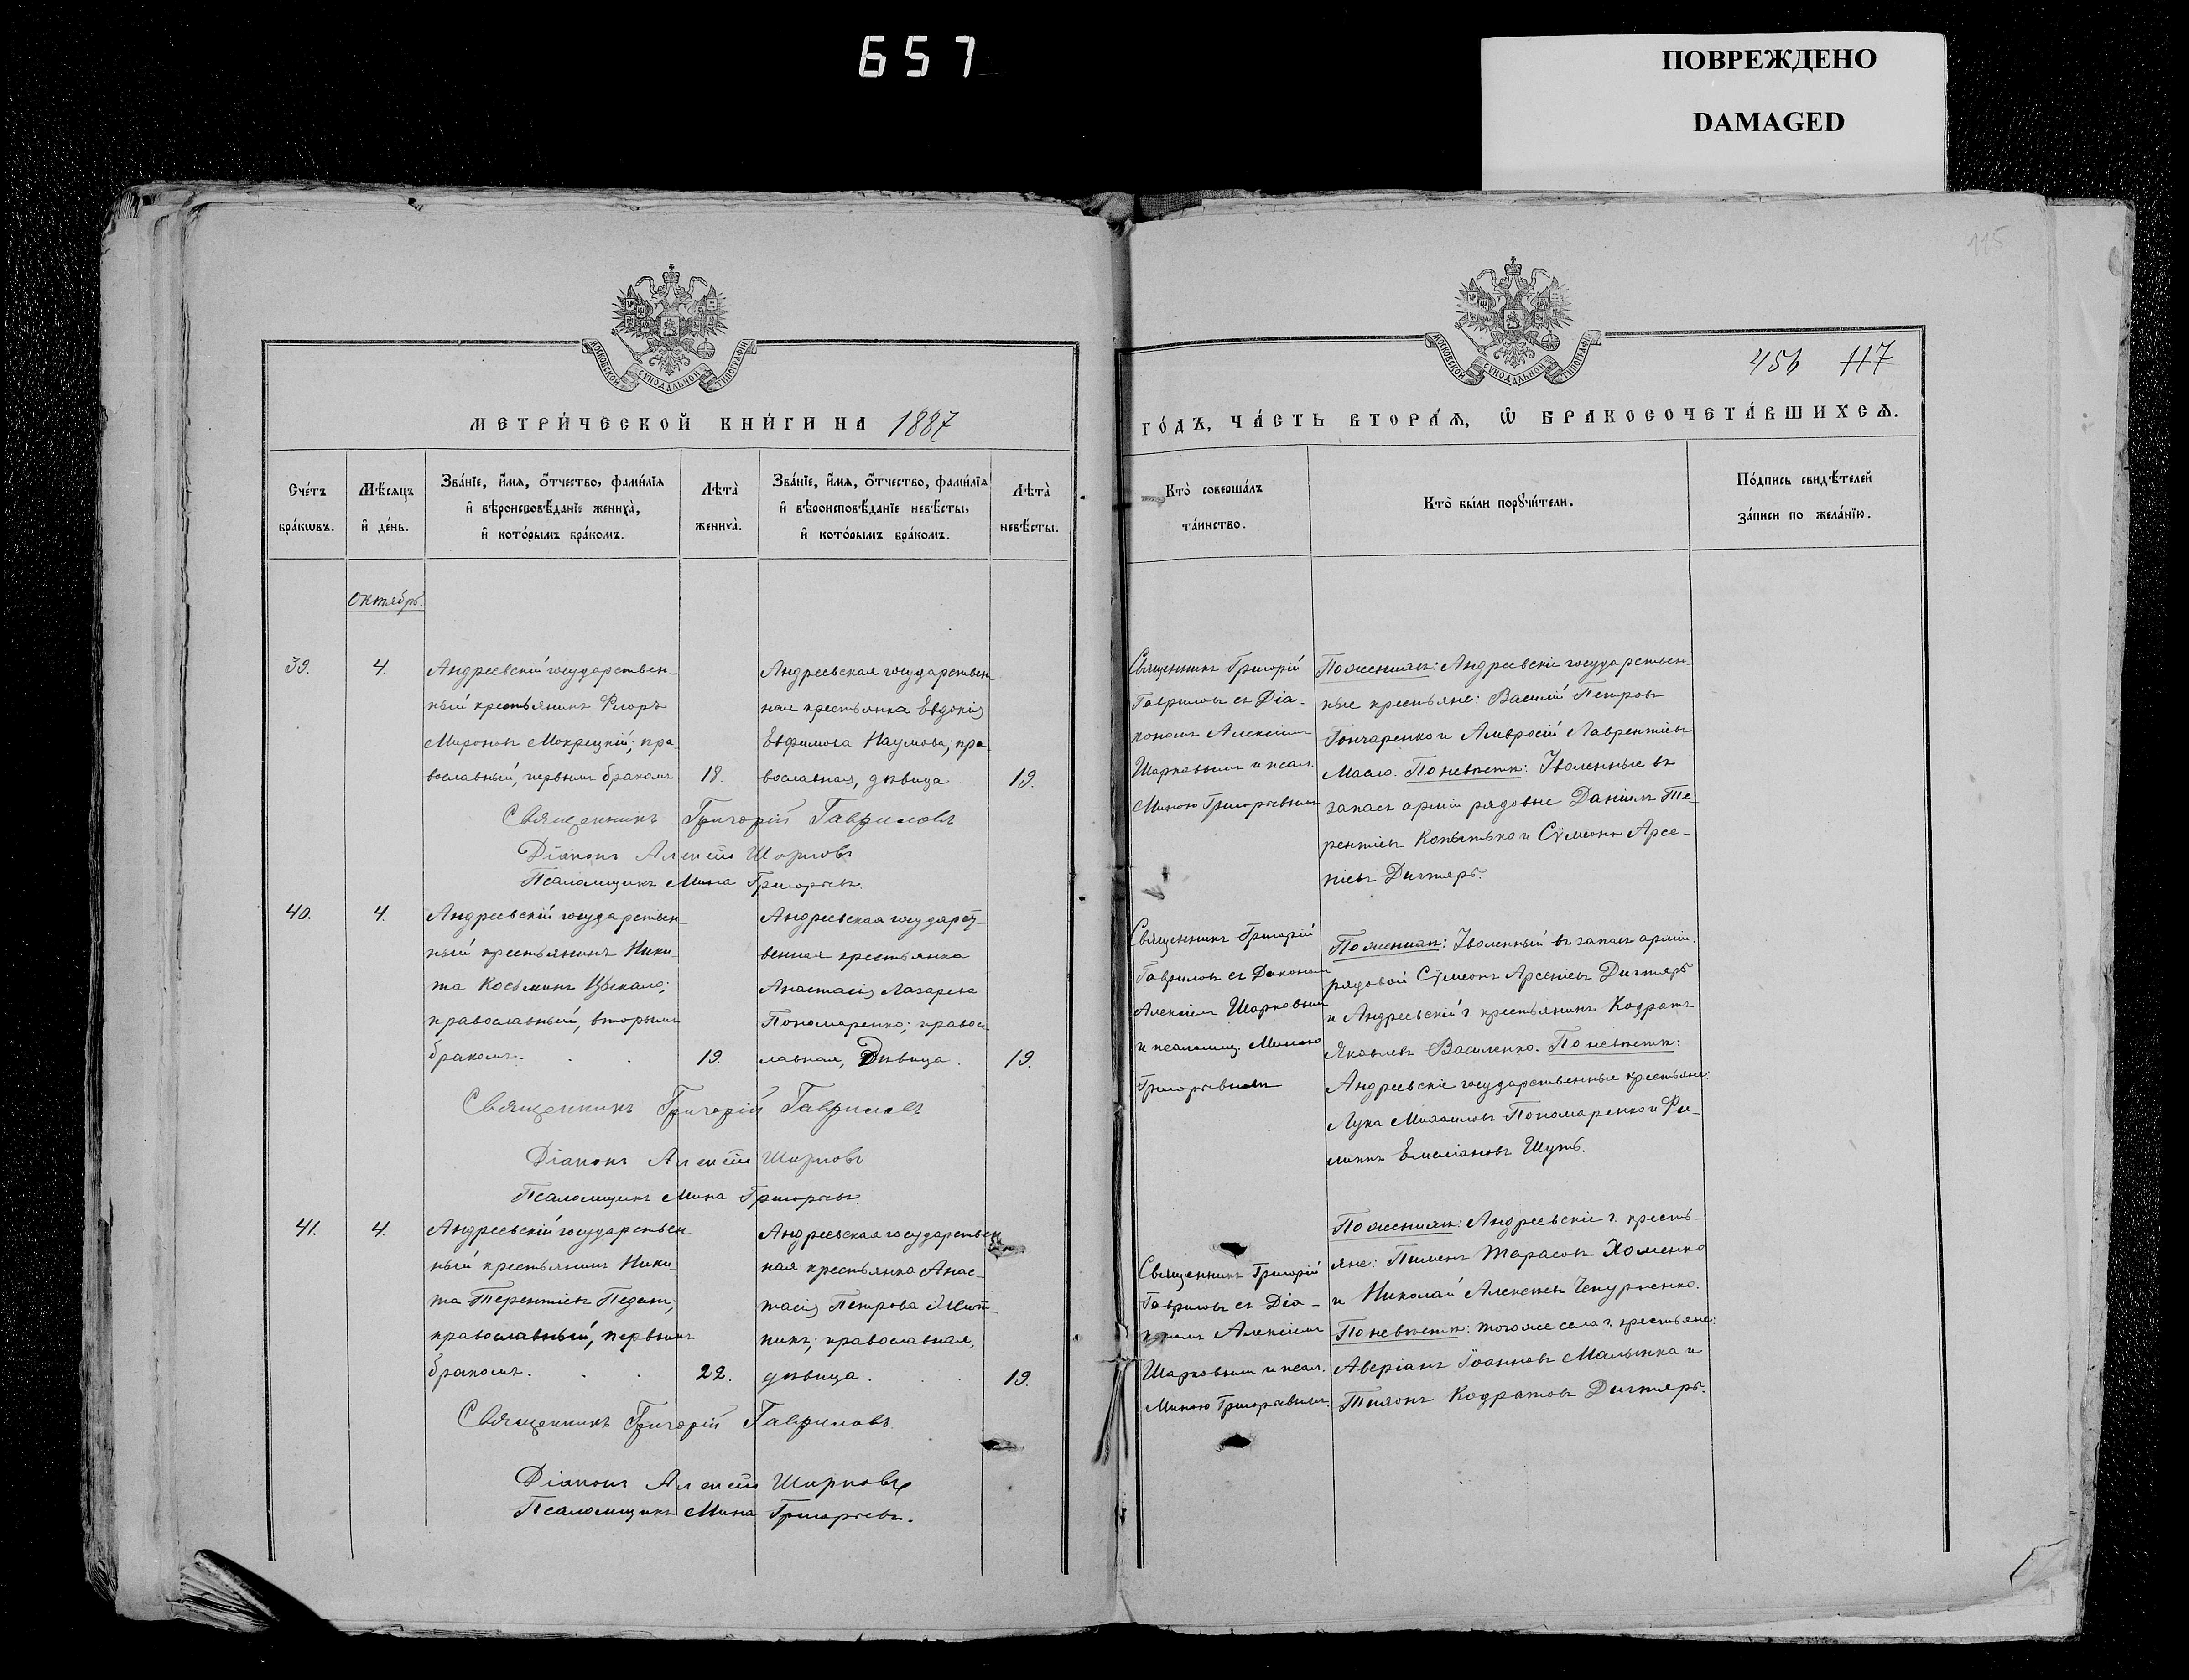 657
ПОВРЕЖДЕНО
DAMAGED
115
МОСКОВСКОЙ СѴНОДАЛЬНОЙ ТИПОГРАФІИ
МОСКОВСКОЙ СѴНОДАЛЬНОЙ ТИПОГРАФІИ
456 117
МЕТРИ́ЧЕСКОЙ КНИ́ГИ НА 1887
ГО́ДЪ, ЧА́СТЬ ВТОРА́Ѧ, Ѡ҆ БРАКОСОЧЕТА́ВШИХСѦ.
Сче́тъ
бра́кѡвъ.
Мѣ́сѧцъ
и҆ де́нь.
Зва́нїе, и҆́мѧ, о҆́тчество, фами́лїѧ
и҆ вѣроисповѣ́данїе жениха̀,
и҆ кото́рымъ бра́комъ.
Лѣта̀
жениха̀.
Зва́нїе, и҆́мѧ, о҆́тчество, фами́лїѧ
и҆ вѣроисповѣ́данїе невѣ́сты,
и҆ кото́рымъ бра́комъ.
Лѣта̀
невѣ́сты.
Кто̀ соверша́лъ
та́инство.
Кто̀ бы́ли порꙋчи́тели.
По́дпись свидѣ́телей
за́писи по жела́нїю.
Октябрь.
39.
4.
Андреевскій государствен-
ный крестьянинъ Флоръ
Мироновъ Мокрецкій; пра-
вославный, первымъ бракомъ
18.
Андреевская государствен-
ная крестьянка Евдокія
Евфимова Наумова; пра-
вославная, дѣвица
19.
Священникъ Григорій
Гавриловъ съ Діа-
кономъ Алексіемъ
Шарковымъ и псал.
Миною Григорьевымъ
По женихѣ: Андреевскіе государствен-
ные крестьяне: Василій Петровъ
Гончаренко и Амвросій Лаврентіевъ
Масло. По невѣстѣ: Уволенные въ
запасъ арміи рядовые Даніилъ Те-
рентіевъ Копытько и Сѵмеонъ Арсе-
ніевъ Дигтярь.
Священникъ Григорій Гавриловъ
Діаконъ Алексій Шарковъ
Псаломщикъ Мина Григорьевъ.
40.
4.
Андреевскій государствен-
ный крестьянинъ Ники-
та Косьминъ Цекало;
православный, вторымъ
бракомъ. . .
19.
Андреевская государст-
венная крестьянка
Анастасія Лазарева
Пономаренко; правос-
лавная, Дѣвица.
19.
Священникъ Григорій
Гавриловъ съ Діакономъ
Алексіемъ Шарковымъ
и псаломщ. Миною
Григорьевымъ
По женихѣ: Уволенный въ запасъ арміи
рядовой Сѵмеонъ Арсеніевъ Дигтярь
и Андреевскій г. крестьянинъ Кодратъ
Яковлевъ Василенко. По невѣстѣ:
Андреевскіе государственные крестьяне:
Лука Михаиловъ Пономаренко и Фи-
липпъ Емеліановъ Шуть.
Священникъ Григорій Гавриловъ
Діаконъ Алексій Шарковъ
Псаломщикъ Мина Григорьевъ.
41.
4.
Андреевскій государствен
ный крестьянинъ Ники-
та Терентіевъ
православный, первымъ
бракомъ. . .
22.
Андреевская государствен
ная крестьянка Анас-
тасія Петрова
православная,
дѣвица. . .
19.
Священникъ Григорій
Гавриловъ съ Діа-
кономъ Алексіемъ
Шарковымъ и псал.
Миною Григорьевымъ.
По женихѣ: Андреевскіе г. кресть-
яне: Пименъ Тарасовъ Хоменко
и Николай Алексіевъ Чепурненко.
По невѣстѣ: того же села г. крестьяне:
Аверіанъ Іоанновъ Малышка и
Тихонъ Кодратовъ Дигтярь.
Священникъ Григорій Гавриловъ.
Діаконъ Алексій Шарковъ
Псаломщикъ Мина Григорьевъ.